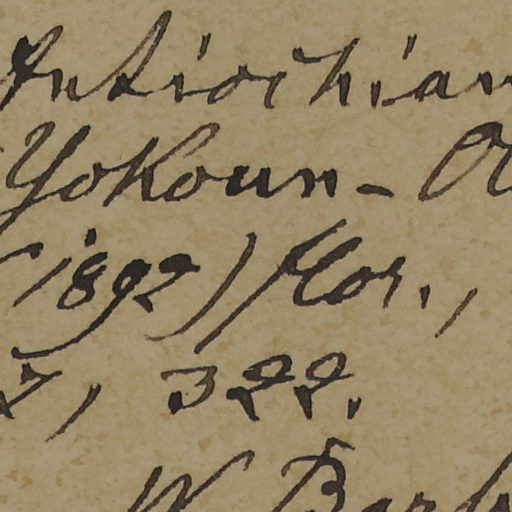 Antiochian
Yokoun-O
(1892) flor.,
7, 322.
W. Barb